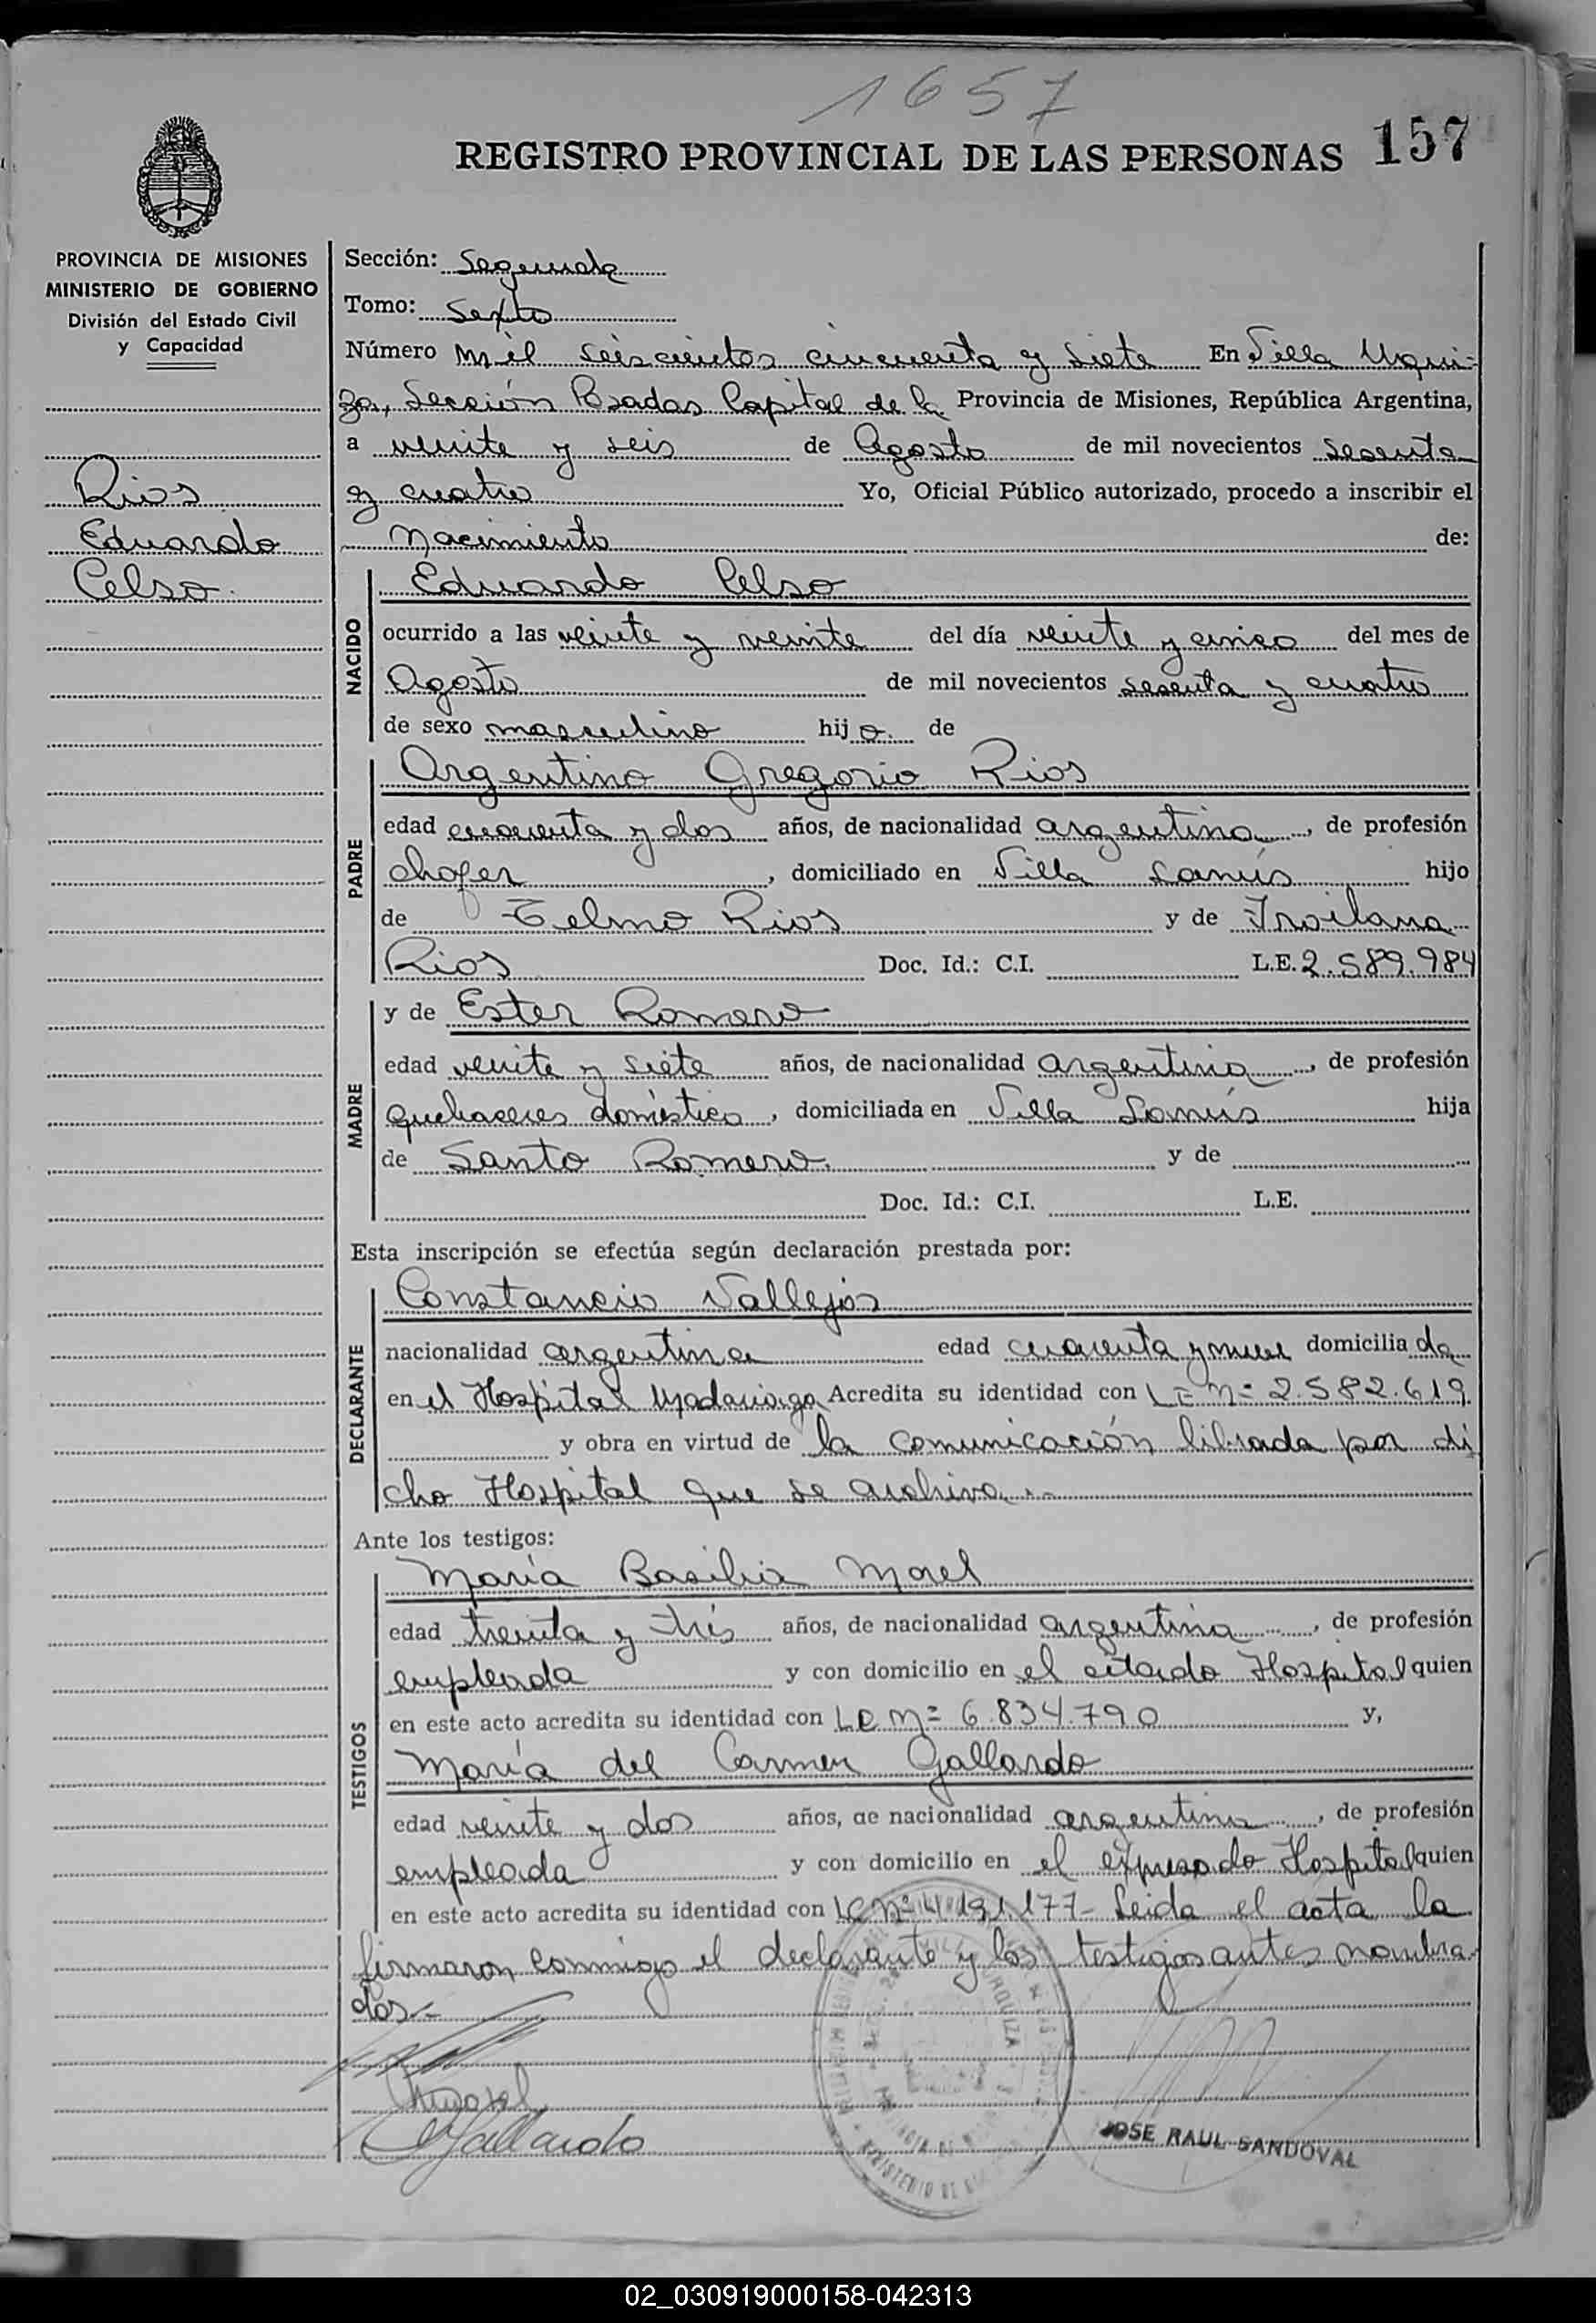 1657
REGISTRO PROVINCIAL DE LAS PERSONAS 157
PROVINCIA DE MISIONES
MINISTERIO DE GOBIERNO
División del Estado Civil
y Capacidad
Rios
Eduardo
Celso.
Sección: Segunda
Tomo: Sexto
Número mil seiscientos cincuenta y siete En Villa Urqui-
za, Sección Posadas Capital de la Provincia de Misiones, República Argentina,
a veinte y seis de Agosto de mil novecientos sesenta
y cuatro Yo, Oficial Público autorizado, procedo a inscribir el
nacimiento de:
NACIDO
Eduardo Celso
ocurrido a las veinte y veinte del día veinte y cinco del mes de
Agosto de mil novecientos sesenta y cuatro
de sexo masculino hijo de
PADRE
Argentino Gregorio Rios
edad cuarenta y dos años, de nacionalidad argentina, de profesión
chofer, domiciliado en Villa Lanús hijo
de Telmo Rios y de Troilana
Rios Doc. Id.: C.I. L.E. 2.589.984
MADRE
y de Ester Romero
edad veinte y siete años, de nacionalidad argentina, de profesión
quehaceres doméstico, domiciliada en Villa Lanús hija
de Santo Romero. y de
Doc. Id.: C.I. L.E.
Esta inscripción se efectúa según declaración prestada por:
DECLARANTE
Constancio Vallejos
nacionalidad argentina edad cuarenta y nueve domicilia da
en el Hospital Madariaga Acredita su identidad con LE Nº 2.582.619
y obra en virtud de la comunicación librada por di
cho Hospital que se archiva.
Ante los testigos:
TESTIGOS
María Basilia Morel
edad treinta y trés años, de nacionalidad argentina, de profesión
empleada y con domicilio en el citado Hospital quien
en este acto acredita su identidad con LC Nº 6.834.790 y,
María del Carmen Gallardo
edad veinte y dos años, de nacionalidad argentina, de profesión
empleada y con domicilio en el expresado Hospital quien
en este acto acredita su identidad con LC Nº 4.191.177- Leida el acta la
firmaron conmigo el declarante y los testigos antes nombra-
dos.-
Gallardo
JOSE RAUL SANDOVAL
02_030919000158-042313